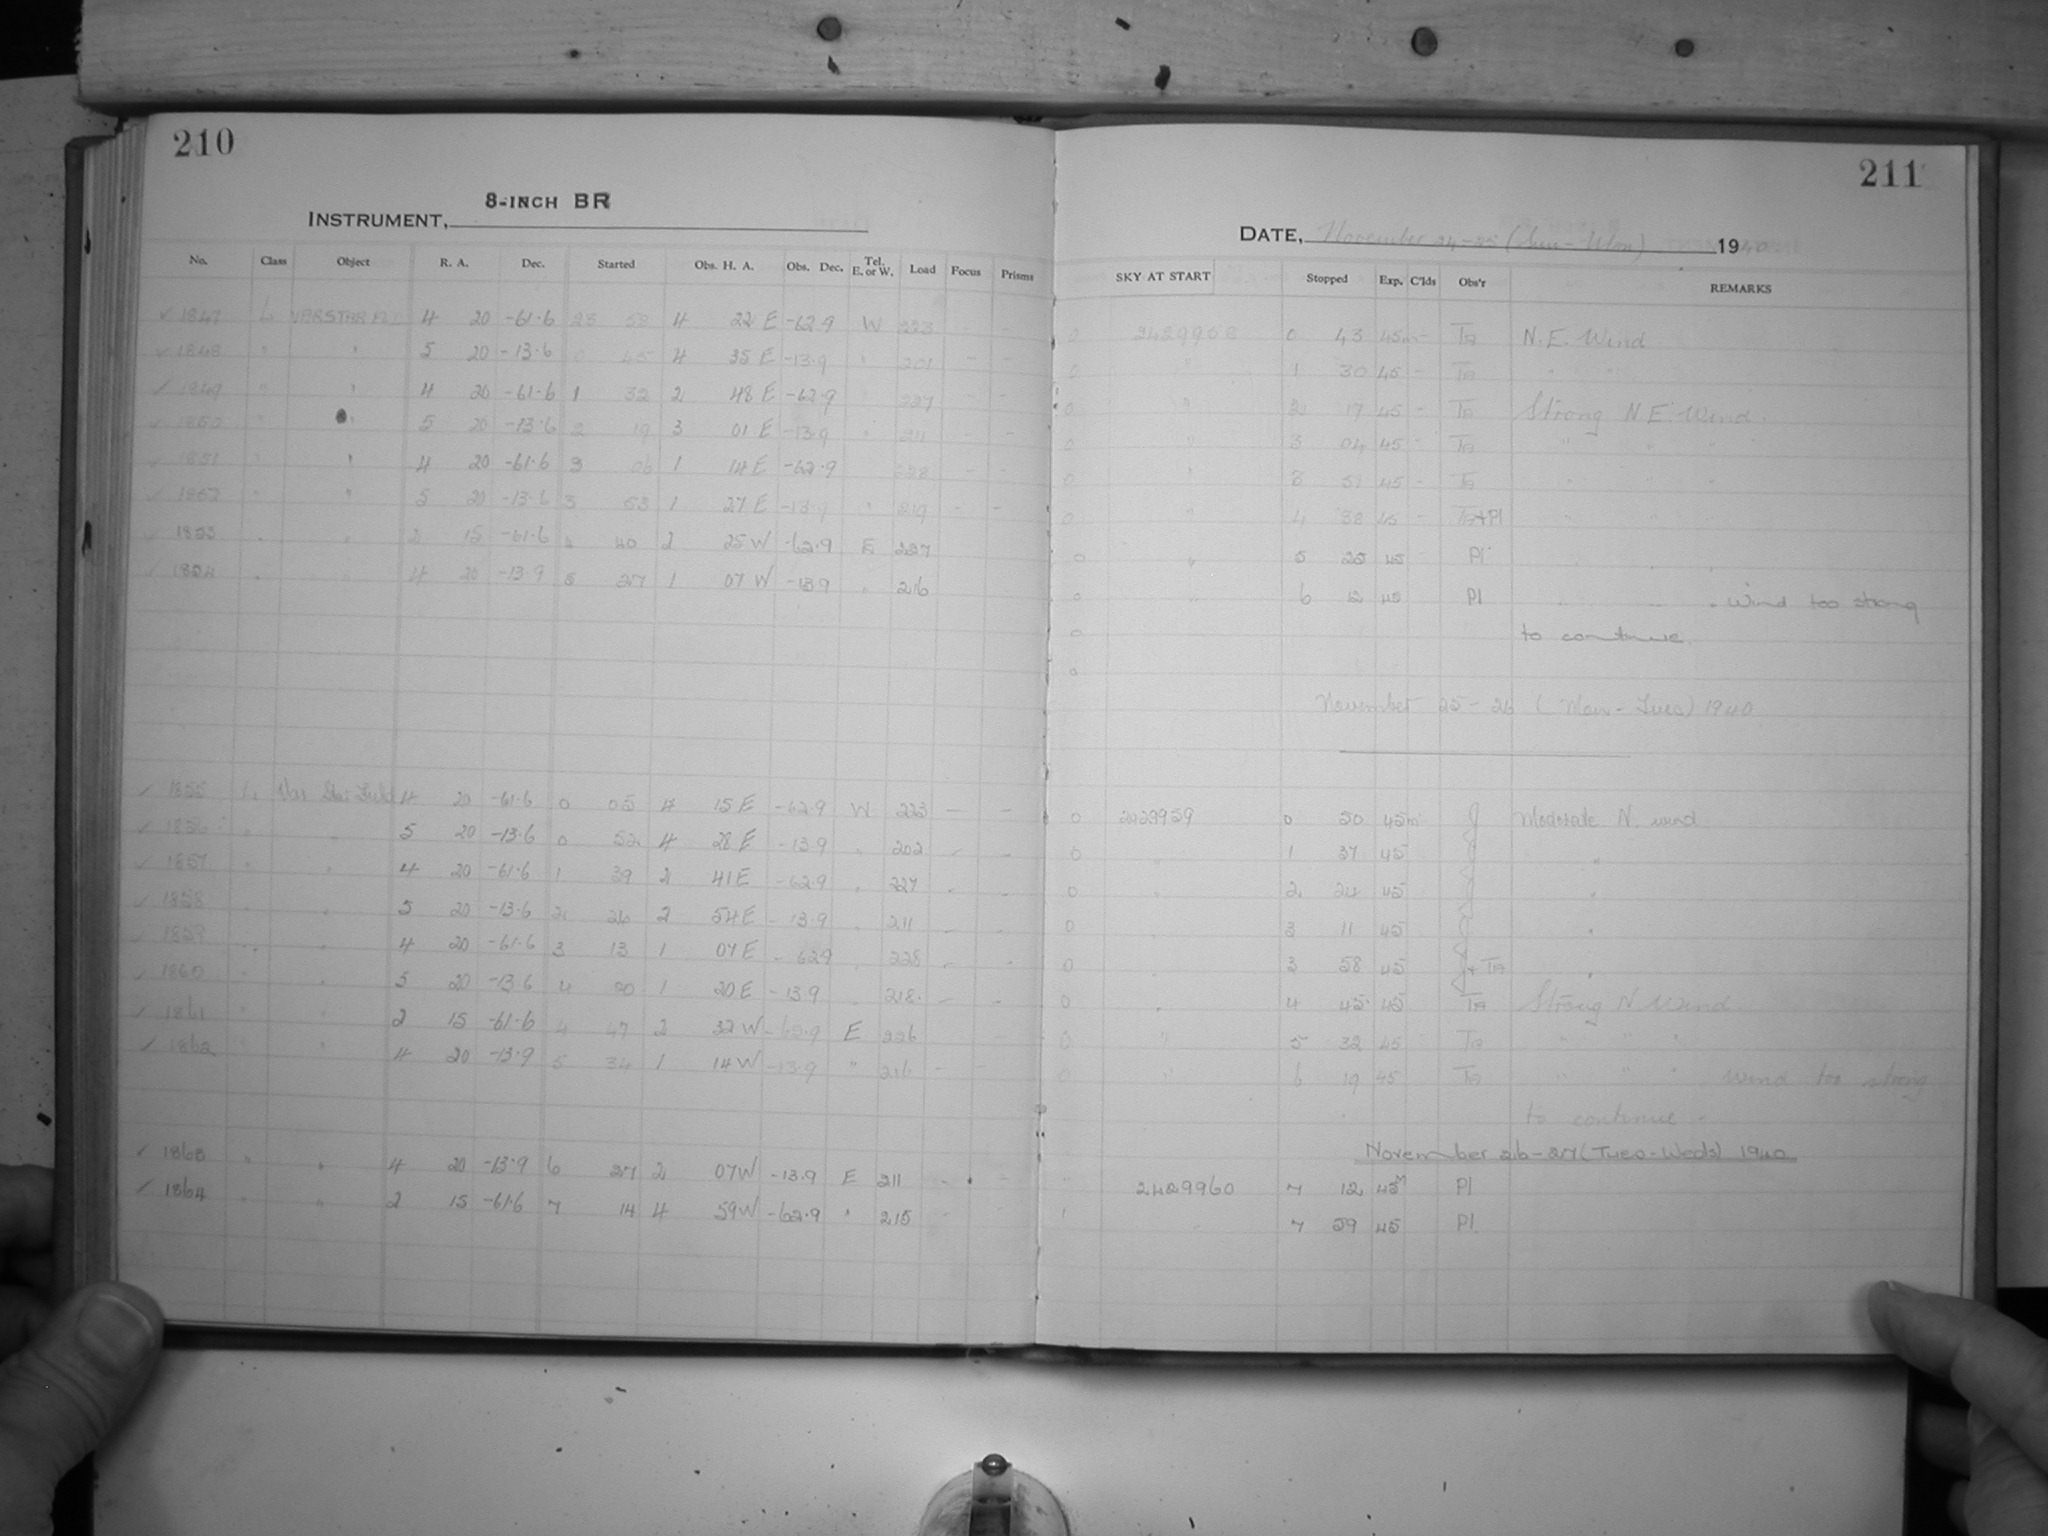 210
8-INCH BR
INSTRUMENT,
No. Class Object R. A. Dec. Started Obs. H. A. Obs. Dec. Tel. E. or W. Load Focus Prisms
✓ 1847 L VARSTAR FLD 4 20 -61.6 23 58 4 22 E -62.9 W 223 - -
✓ 1848 " " 5 20 -13.6 0 45 4 35 E -13.9 " 201 - -
✓ 1849 " " 4 20 -61.6 1 32 2 48 E -62.9 227 - -
✓ 1850 " " 5 20 -13.6 2 19 3 01 E -13.9 " 211 - -
✓ 1851 " " 4 20 -61.6 3 06 1 14 E -62.9 228 - -
✓ 1852 " " 5 20 -13.6 3 53 1 27 E -13.9 " 219 - -
✓ 1853 " " 2 15 -61.6 4 40 2 25 W -62.9 E 227
✓ 1854 " " 4 20 -13.9 5 27 1 07 W -13.9 " 216
✓ 1855 L Var Star Field 4 20 -61.6 0 05 4 15 E -62.9 W 223 - -
✓ 1856 " " 5 20 -13.6 0 52 4 28 E -13.9 " 202 - -
✓ 1857 " " 4 20 -61.6 1 39 2 41 E -62.9 " 227 - -
✓ 1858 " " 5 20 -13.6 2 26 2 54 E -13.9 " 211 - -
✓ 1859 " " 4 20 -61.6 3 13 1 07 E -62.9 " 228 - -
✓ 1860 " " 5 20 -13.6 4 00 1 20 E -13.9 " 218 - -
✓ 1861 " " 2 15 -61.6 4 47 2 32 W -62.9 E 226
✓ 1862 " " 4 20 -13.9 5 34 1 14 W -13.9 " 216 - -
✓ 1863 " " 4 20 -13.9 6 27 2 07 W -13.9 E 211 -
✓ 1864 " " 2 15 -61.6 7 14 4 59 W -62.9 " 215 -
211
DATE, November 24-25 (Sun-Mon) 1940
SKY AT START Stopped Exp. C'lds Obs'r REMARKS
0 2429958 0 43 45m - Ta N.E. Wind
0 " 1 30 45 - Ta " "
0 " 2 17 45 - Ta Strong N.E. Wind.
0 " 3 04 45 - Ta " " "
0 " 3 51 45 - Ta " " "
0 " 4 38 45 - Ta+Pl " " "
0 " 5 25 45 Pl " " "
0 " 6 12 45 Pl " " " Wind too strong
0 to continue.
0
November 25-26 (Mon-Tues) 1940
0 2429959 0 50 45m J Moderate N. wind
0 " 1 37 45 J "
0 " 2 24 45 J "
0 " 3 11 45 J "
0 " 3 58 45 J+Ta "
0 " 4 45 45 Ta Strong N Wind.
0 " 5 32 45 Ta " " "
0 " 6 19 45 Ta " " " Wind too strong
to continue.
November 26-27 (Tues-Weds) 1940
" 2429960 7 12 45m Pl
7 59 45 Pl